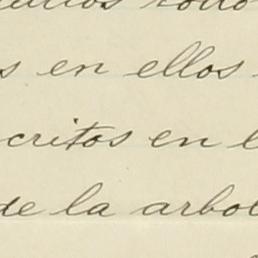 s en ellos
critos en l
de la arbol